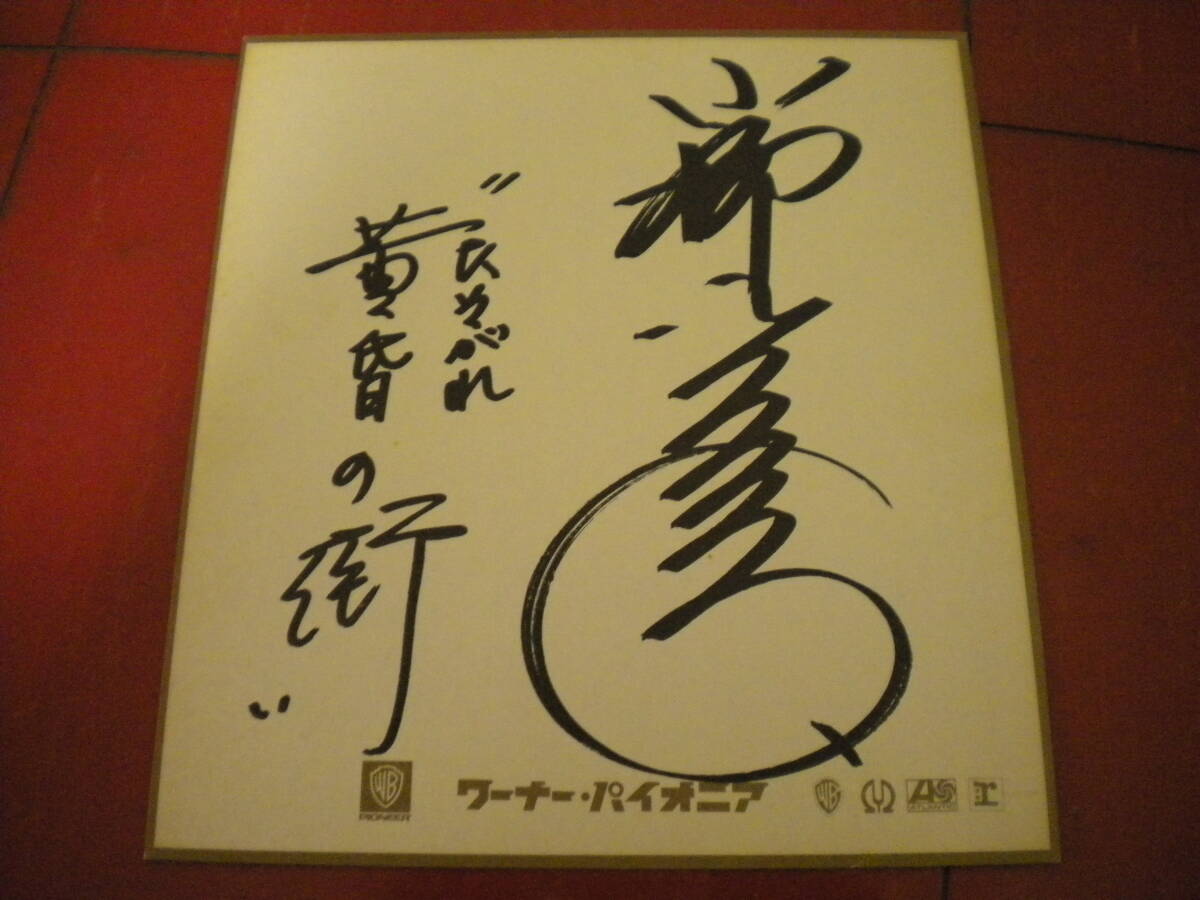 "たそがれ
黄昏の街"
WB
PIONEER
ワーナー・パイオニア
WB
ATLANTIC
r